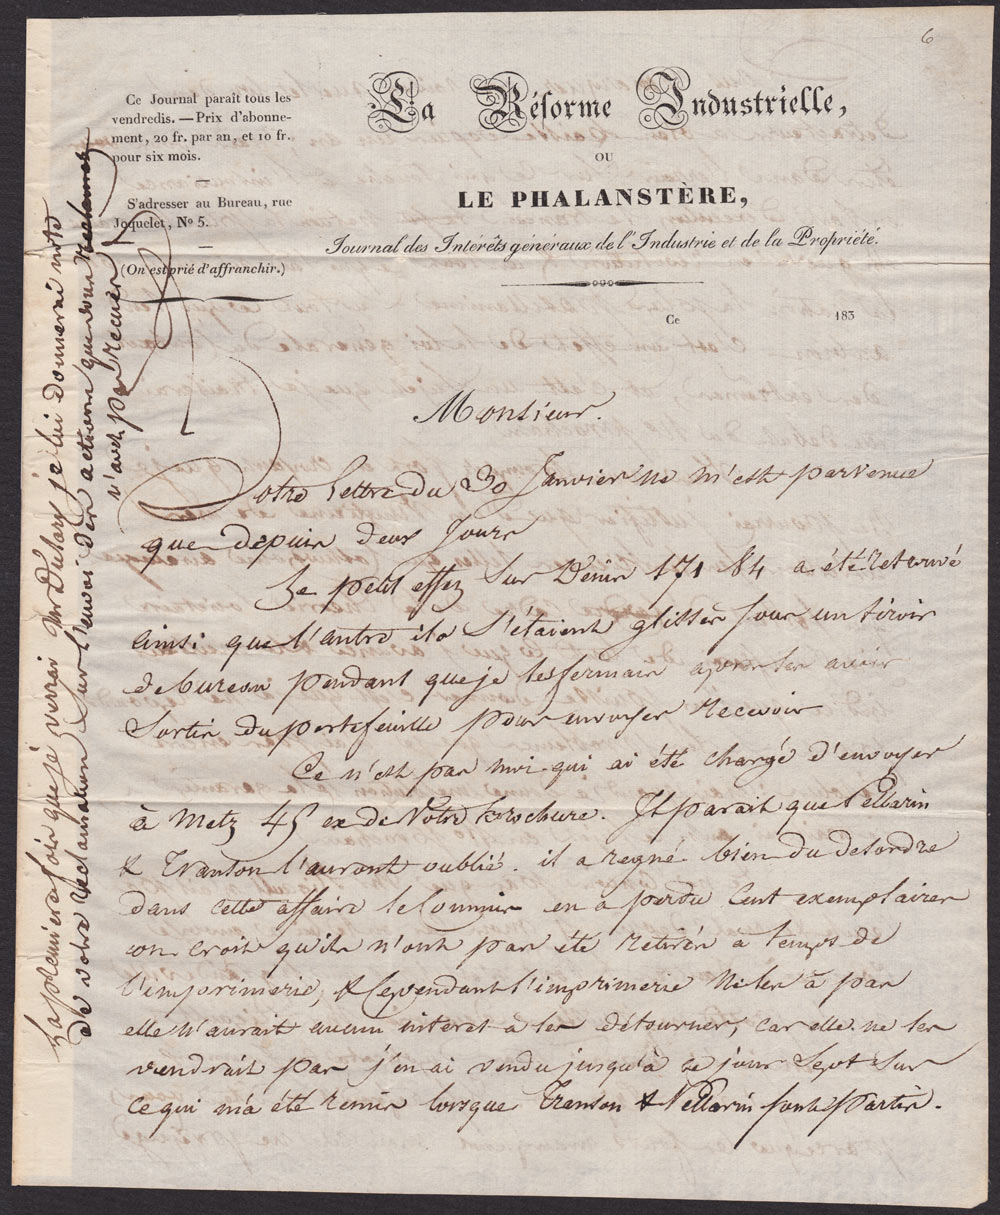 6
Ce Journal paraît tous les
vendredis. — Prix d'abonne-
ment, 20 fr. par an, et 10 fr.
pour six mois.
S'adresser au Bureau, rue
Joquelet, No 5.
(On est prié d'affranchir.)
La Réforme Industrielle,
OU
LE PHALANSTÈRE,
Journal des Intérêts généraux de l'Industrie et de la Propriété.
Ce 183
Monsieur.
Votre lettre du 30 Janvier ne m'est parvenue
que depuis deux Jours
Le petit effet sur Denis 171 84 a été retrouvé
ainsi que l'autre ils s'étaient glissés sous un tiroir
de bureau pendant que je les fermais après les avoir
sortis du portefeuille pour envoyer recevoir
Ce n'est pas moi qui ai été chargé d'envoyer
à Metz 45 ex de Votre brochure. Il parait que Pellarin
& Transon l'auront oublié. il a regné bien du desordre
dans cette affaire le commis en a perdu Cent exemplaires
on croit qu'ils n'ont pas été retirés à temps de
l'imprimerie, & Cependant l'imprimerie ne les à pas
elle n'aurait aucun interet a les détourner, car elle ne les
vendrait pas j'en ai vendu jusqu'à ce jour Sept sur
ce qui m'a été remis lorsque Transon & Pellarin sont partis.
La premiere fois que je verrai Mr Dulary je lui donnerai note
de votre reclamation sur l'envoi des actions que vous reclamez
n'avez pas recues